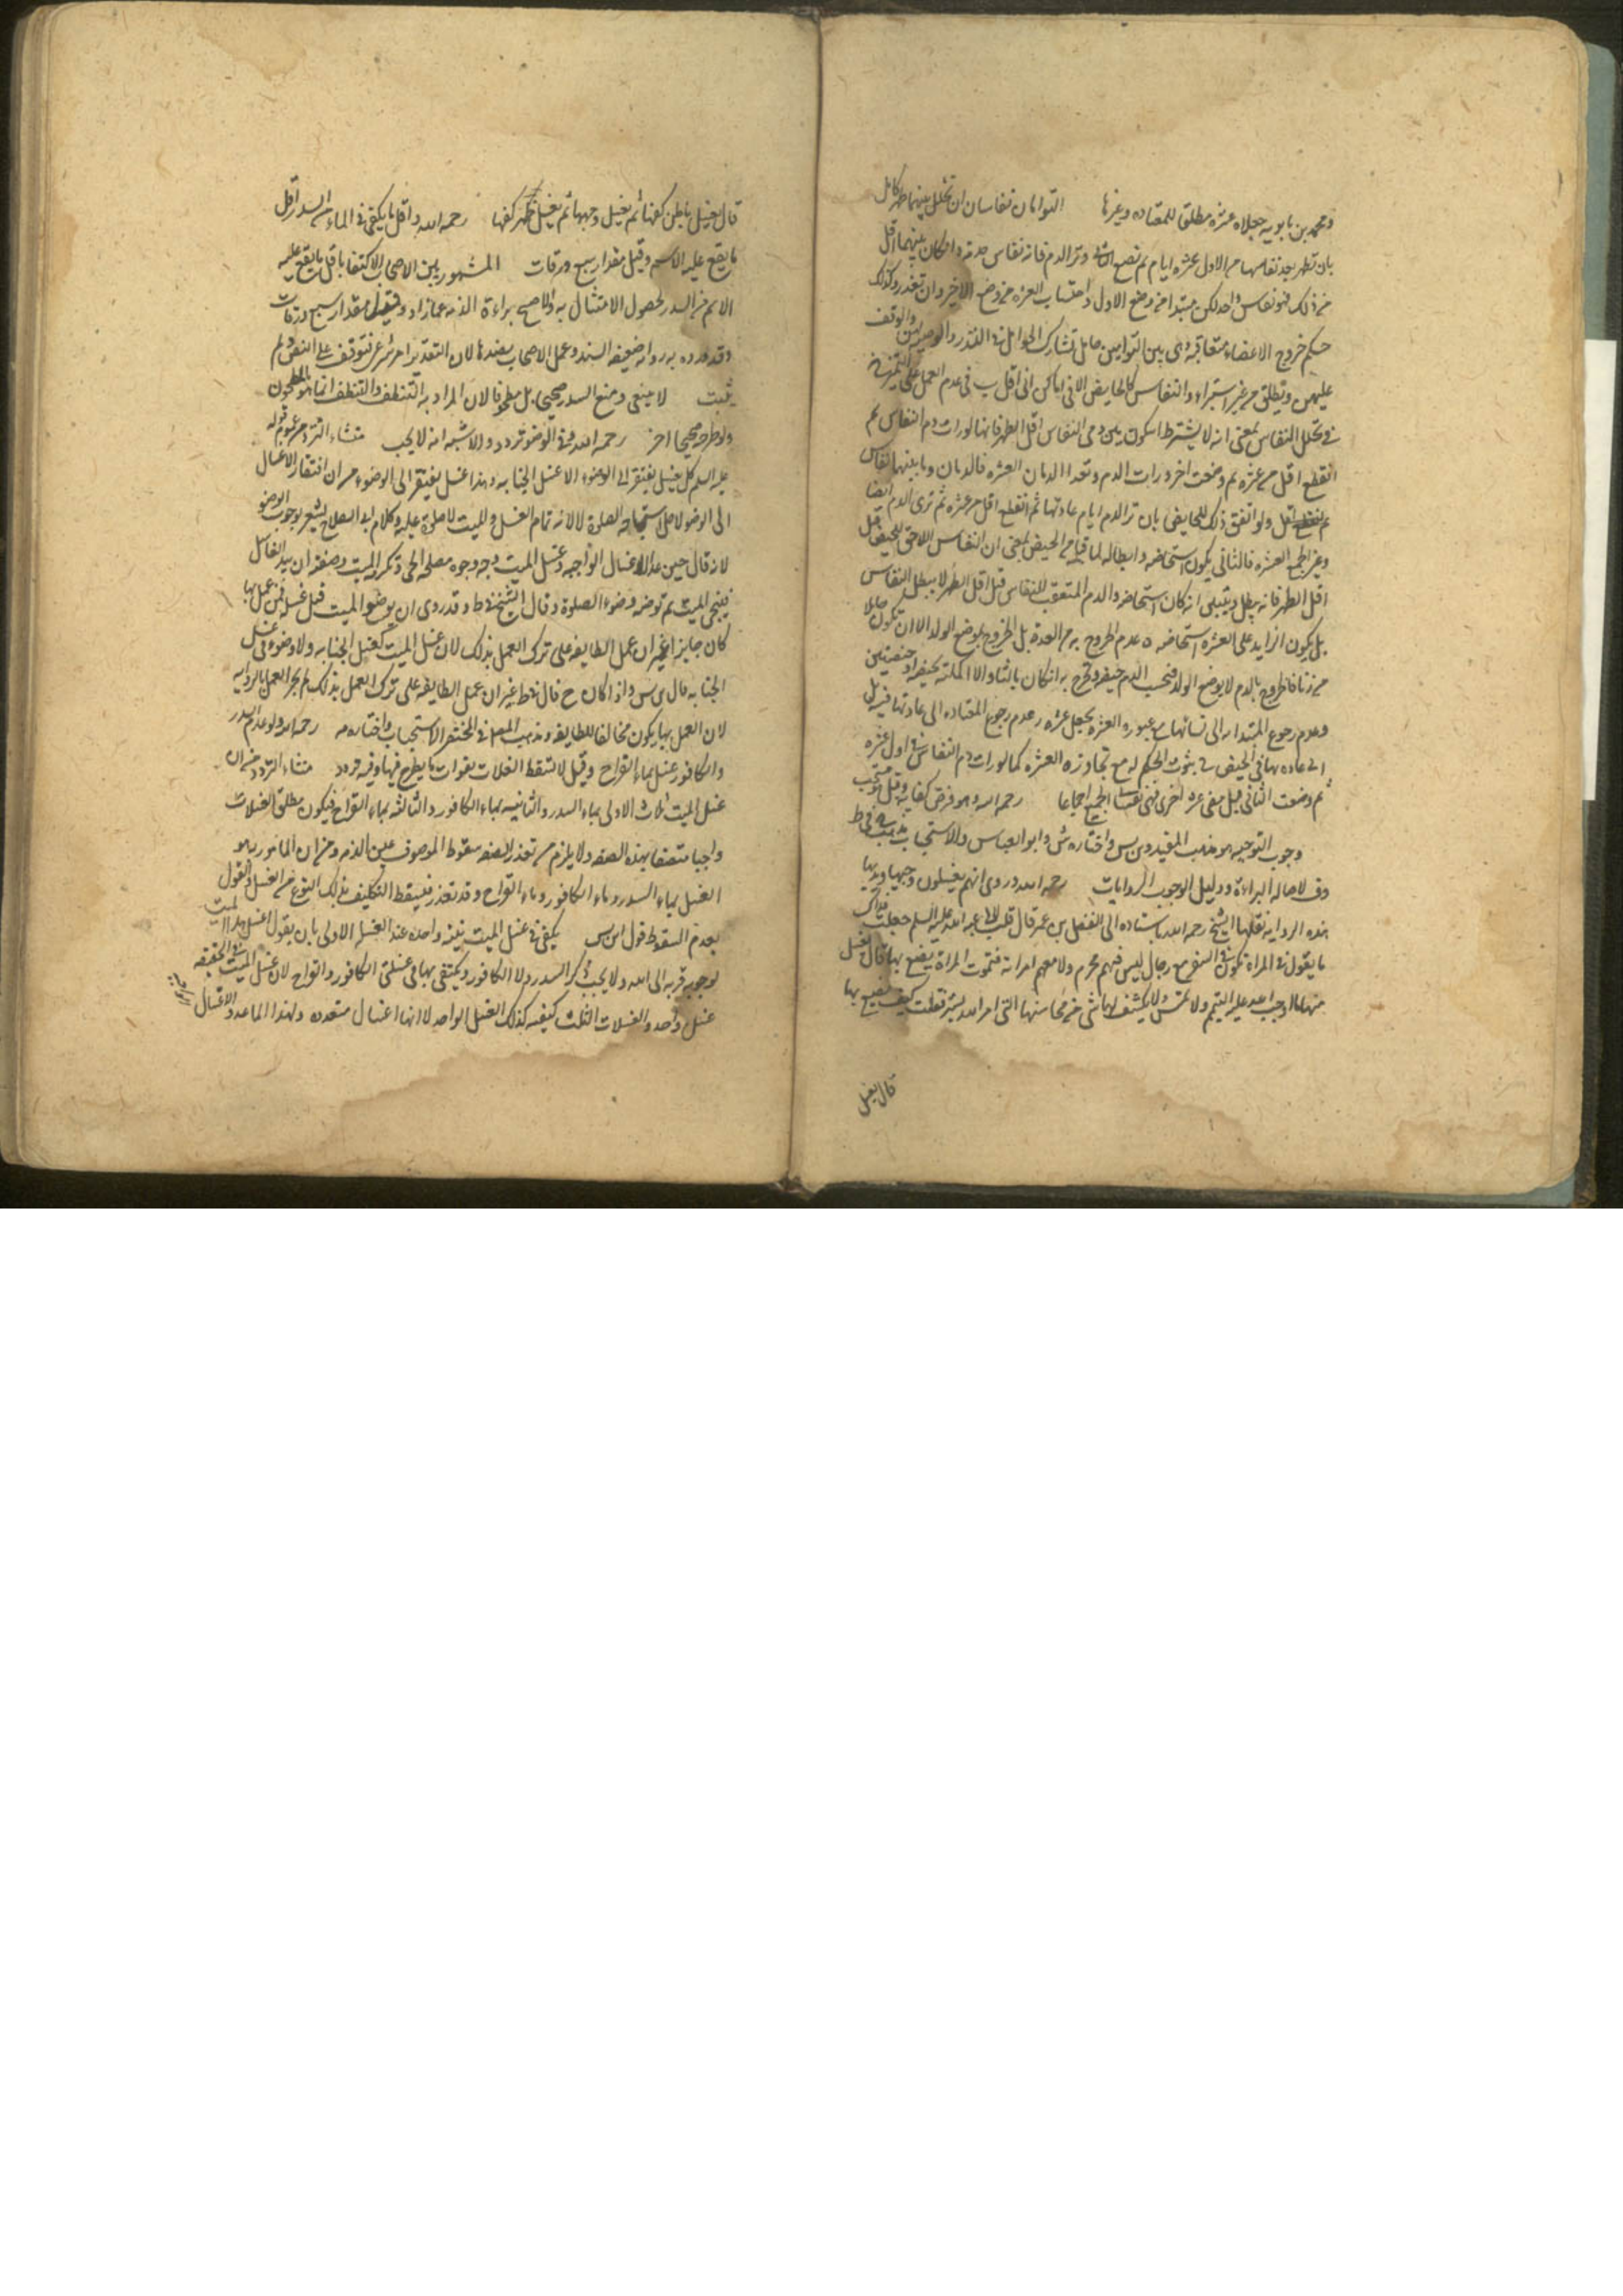 ومحمد بن بابويه جعلاه عشرة مطلق للمعتاده وغيرها التوامان نفاسان ان تخلل بينهما طهر كامل
بان تطهر بعد نفاسها من الاول عشره ايام ثم تضع الثانى وتر الدم فانه نفاس حدة وان كان بينهما اقل
من ذلك فهو نفاس واحد لكن مبتداه من وضع الاول واحتساب العشره من وضع الاخير وان تعذر وكذلك
حكم خروج الاعضاء متعاقبة وهى بين التوامين حامل تشارك الحوامل فى النذر والوصيه لهن والوقف
عليهن وتطلق من غير استبراء والنفاس كالحايض الا فى اماكن فى اقل ب فى عدم العمل على التميز
فى تخلل النفاس بمعنى انه لا يشترط ان يكون بين دمى النفاس اقل الطهر فانها لو رات دم النفاس ثم
انقطع اقل من عشره ثم وضعت اخر ورات الدم وتعدا الدمان العشره فالدمان وما بينهما نفاس
ولو اتفق ذلك للحايض بان تر الدم ايام عادتها ثم انقطع اقل من عشره ثم ترى الدم ايضا
وعبر الجميع العشره فالثانى يكون استحاضه وابطاله لما قبله من الحيض بمعنى ان النفاس اللاحق للحيض قبل
اقل الطهر فانه يبطل ويتبين انه كان استحاضه والدم المتعقب للنفاس قبل اقل الطهر لا يبطل النفاس
بل يكون الزايد على العشره استحاضه ه عدم الخروج به من العدة بل الخروج بوضع الولد الا ان تكون حاملا
من زنا فالخروج بالدم لا بوضع الولد فتحسب الدم حيضه وتخرج به ان كان بالثناه والا اكملته بحيضه او حيضتين
وعدم رجوع المبتداه الى نسائها مع عبوره العشره بجعل عشره وعدم رجوع المعتاده الى عادتها فيه بل
الى عاده بها فى الحيض فى ثبوت الحكم له مع تجاوزه العشره كما لو رات دم النفاس فى اول عشره
ثم وضعت الثانى قبل مضى عشره اخرى فهى نفاس الجميع اجماعا رحمه الله وهو فرض كفايه وقيل هو مستحب
وجوب التوجيه هو مذهب المفيد وبن س واختاره ش وابو العباس والاستحباب مذهب الشيخ فى ط
وف لاصاله البراءة ودليل الوجوب الروايات رحمه الله وروى انهم يغسلون وجهها ويديها
هذه الروايه نقلها الشيخ رحمه الله باسناده الى المفضل بن عمر قال قلت لابى عبد الله عليه السلم جعلت فداك
ما يقول فى المراة تكون فى السفر مع رجال ليس فيهم محرم ولا معهم امراة فتموت المراة يصنع بها قال يغسل
منها ما اوجب الله عليه التيمم ولا تمس ولا يكشف لها شى من محاسنها التى امر الله بستره قلت كيف يصنع بها
قال يغسل
قال يغسل باطن كفيها ثم يغسل وجهها ثم يغسل ظهر كفيها رحمه الله واقل ما يكفى فى الماء من السدر اقل
ما يقع عليه الاسم وقيل مقدار سبع ورقات المشهور بين الاصحاب الاكتفا باقل ما يقع عليه
الاسم من السدر لحصول الامتثال به والاصح براءة الذمه عما زاد وقيل مقدار سبع ورقات
وقد ورد به روايه ضعيفه السند وعمل الاصحاب بضدها لان التقدير امر شرعى فتوقف على النص ولم
يثبت لا ينفى ومنع السدر صحيحا بل مطحونا لان المراد به التنظف والتنظف انما هو بالمطحون
ولو طرحه صحيحا اجز رحمه الله وفى الوضو تردد والاشبه انه لا يجب منشاء التردد من عموم قوله
عليه السلم كل غسل يفتقر الى الوضوء الا غسل الجنابه وهذا غسل فيفتقر الى الوضوء من ان افتقار الاغسال
الى الوضو لاجل استباحه الصلوة لا لانه تمام الغسل والميت لا صلوة عليه وكلام ابى الصلاح يشعر بوجوب الوضو
لانه قال حين عد الاغسال الواجبه وغسل الميت وجه وجوبه مصلحه الحى وتكرمه الميت وصفته ان يبدا الغاسل
فينجى الميت ثم توضه وضوء الصلوة وقال الشيخ فى ط وقد روى ان يوضوا الميت قبل غسله فمن عمل بها
كان جايزا غير ان عمل الطايفه على ترك العمل بذلك لان غسل الميت كغسل الجنابه ولا وضوء فى غسل
الجنابه قال بن س واذا كان ح قال فى ط غير ان عمل الطايفه على ترك العمل بذلك لم يجز العمل بالروايه
لان العمل بها يكون مخالفا للطايفه ومذهب المصنف فى المختصر الاستحباب واختاره مه رحمه الله ولو عدم السدر
والكافور غسل بماء القراح وقيل لا تسقط الغسلات بفوات ما يطرح فيها وفيه تردد منشاء التردد من ان
غسل الميت ثلاث الاولى بماء السدر والثانيه بماء الكافور والثالثه بماء القراح فيكون مطلق الغسلات
واجبا متصفا بهذه الصفه ولا يلزم من تعذر الصفه سقوط الموصوف عن الذمه ومن ان المامور به هو
الغسل بماء السدر وماء الكافور وماء القراح وقد تعذر فيسقط التكليف بذلك النوع من الغسل والقول
بعدم السقوط قول ابن س يكفى فى غسل الميت نيه واحده عند الغسل الاولى بان يقول اغسل هذا الميت
لوجوبه قربه الى الله ولا يجب ذكر السدر ولا الكافور ويكتفى بها فى غسلتى الكافور والقراح لان غسل الميت فى الحقيقه
غسل واحد والغسلات الثلث كيفيه كذلك الغسل الواحد لا انها اغسال متعدده ولهذا لما عدد الاغسال